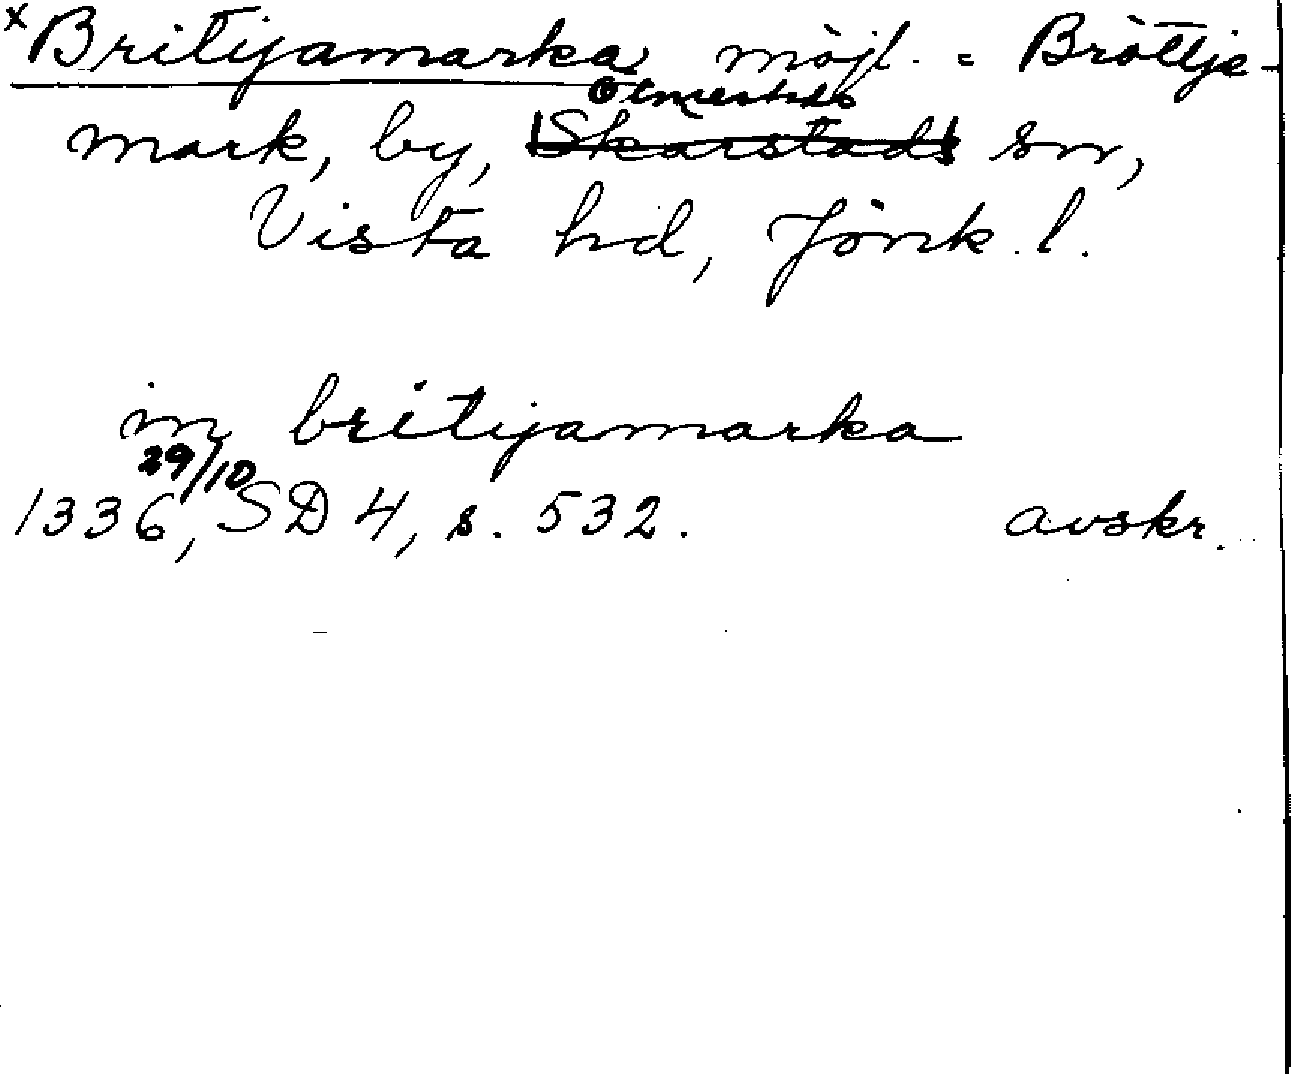 x Britijamarka möjl. = Bröttje-
Ölmestads
mark, by, Skärstads sn,
Vista hd, Jönk. l.
in britijamarka
29/10
1336, SD 4, s. 532. avskr.